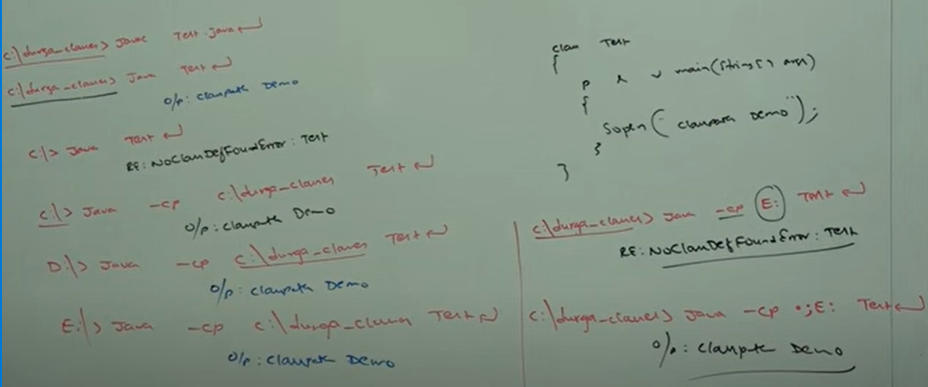 c:\durga_classes> javac Test.java ↵
c:\durga_classes> java Test ↵
o/p: classpath Demo
c:\> java Test ↵
RE: NoClassDefFoundError: Test
c:\> java -cp c:\durga_classes Test ↵
o/p: classpath Demo
D:\> java -cp c:\durga_classes Test ↵
o/p: classpath Demo
E:\> java -cp c:\durga_classes Test ↵
o/p: classpath Demo
class Test
{
p s v main(String[] args)
{
sopln("classpath Demo");
}
}
c:\durga_classes> java -cp E: Test ↵
RE: NoClassDefFoundError: Test
c:\durga_classes> java -cp .;E: Test ↵
o/p: classpath Demo